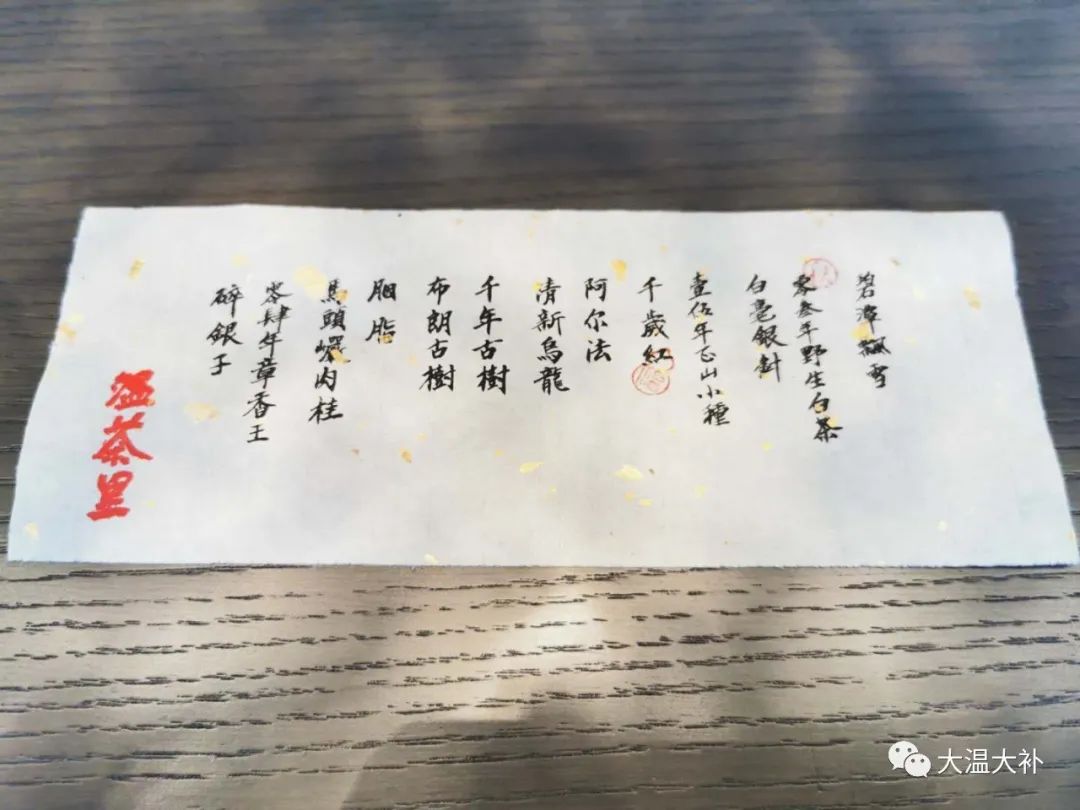 碧潭飄雪
零叁年野生白茶
白毫銀針
壹伍年正山小種
千歲紅
阿尔法
清新烏龍
千年古樹
布朗古樹
胭脂
馬頭巖肉桂
零肆年章香王
碎銀子
溫茶里
大温大补